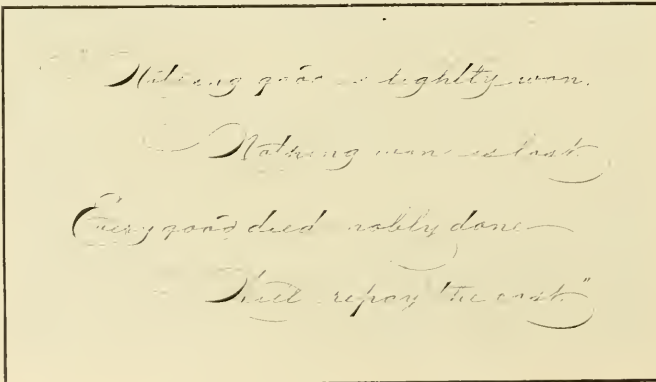 Nothing good is lightly won.
Nothing won is lost
Every good deed nobly done
Will repay the cost."